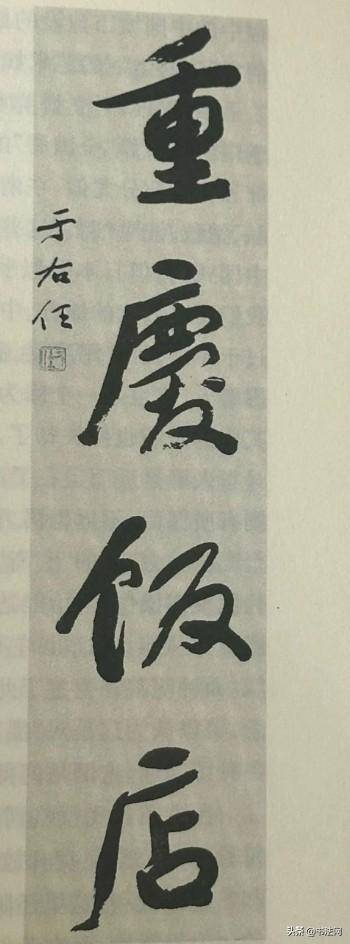 重慶飯店
于右任
头条@书法网